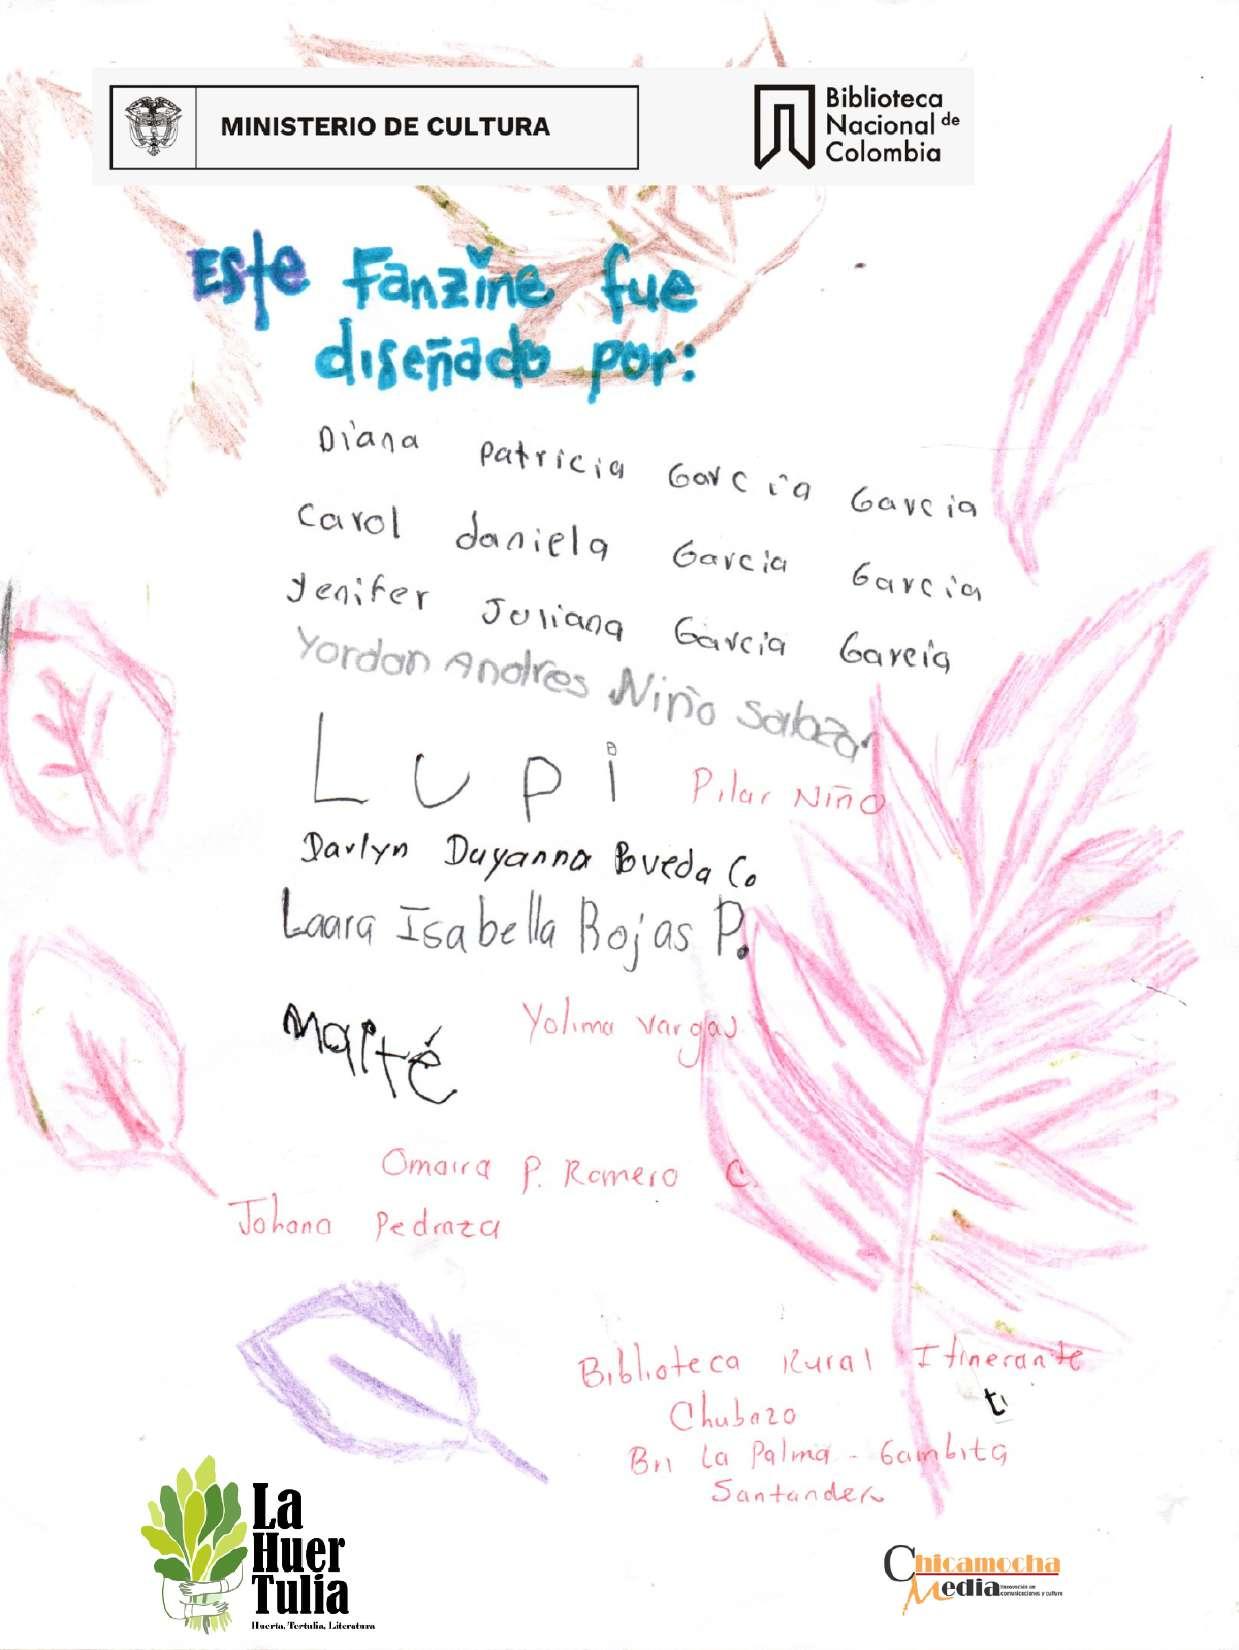 MINISTERIO DE CULTURA
Biblioteca
Nacional de
Colombia
Este Fanzine fue
diseñado por:
Diana Patricia García Garcia
Carol daniela Garcia García
Yenifer Juliana Garcia Garcia
Yordan Andres Niño Salazar
Lupi Pilar Niño
Darlyn Dayanna Poveda Co
Laara Isabella Rojas P.
Maité Yolima Vargas
Omaira P. Romero C.
Johana Pedraza
Biblioteca Rural Itinerante
ti
Chubazo
Bri La Palma - Gambita
Santander
La
Huer
Tulia
Huerta, Tertulia, Literatura
Chicamocha
Media
comunicaciones y cultura